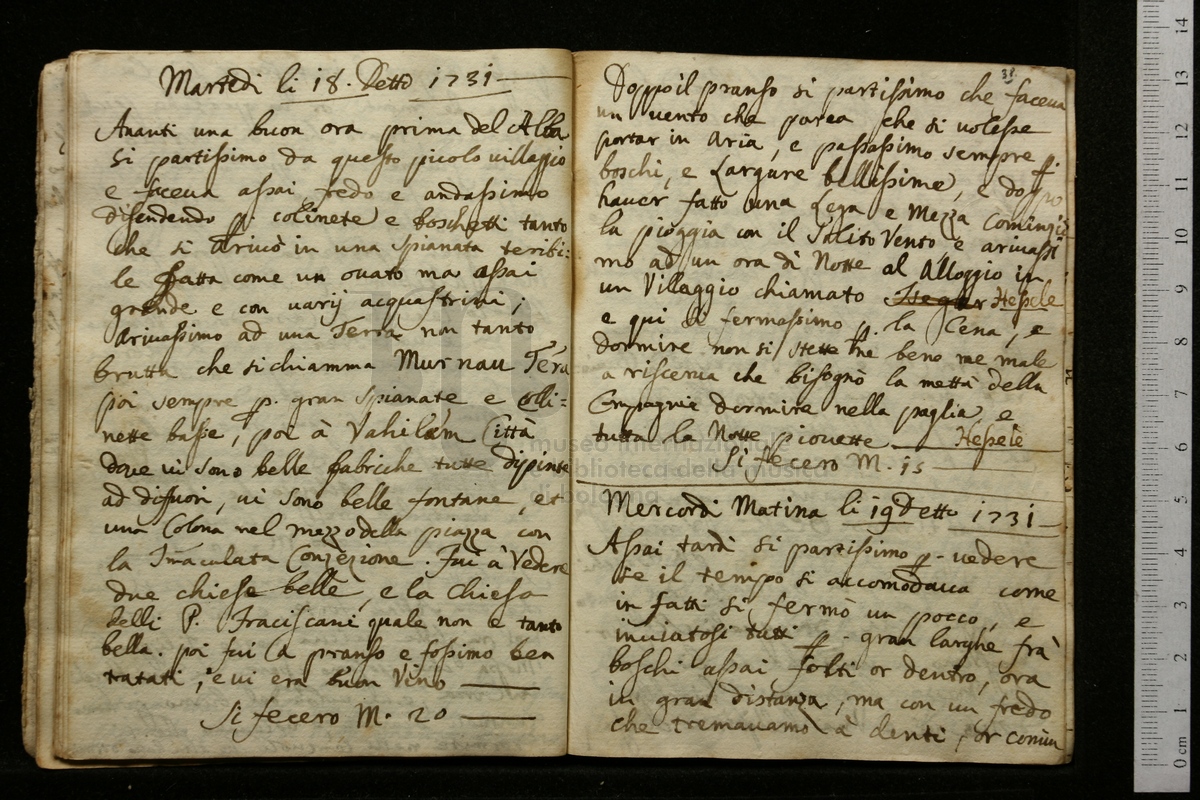 Martedi li 18. Detto 1731
Avanti una buon ora prima del Alba
si partissimo da questo picolo villaggio
e faceva assai fredo e andassimo
disendendo p. colinete e boschetti tanto
che si arivò in una spianata teribi:
le fatta come un ovato ma assai
grande e con varij acquastrini;
arivassimo ad una Terra non tanto
brutta che si chiamma Murnau Tera
poi sempre p. gran spianate e colli:
nette basse, poi à Vahilam Città
dove vi sono belle fabriche tutte dipinte
ad difuori, vi sono belle fontane, et
una Colona nel mezzo della piazza con
la Imaculata Conzezione. Fui à Vedere
due chiese belle, e la Chiesa
delli P. Fraciscani quale non è tanto
bella. poi fui a pranso e fossimo ben
tratati, e vi era buon Vino
Si fecero M. 20
38.
Doppo il pranso si partissimo che faceva
un vento che parea che si volesse
portar in Aria, e passassimo sempre p.
boschi, e Largure bellissime, e doppo
haver fatto una Lega e Mezza comingiò
la pioggia con il Solito Vento e arivassi
mo ad un ora di Notte al Alloggio in
un Villaggio chiamato Hessele
e qui si fermassimo p. la Cena, e
dormire non si stette ne bene ne male
a riserva che bisognò la mettà della
Compagnia dormire nella paglia e
tutta la Notte piovette Hessele
Si fecero M. 15
Mercordi Matina li 19 Detto 1731
Assai tardi si partissimo p. vedere
se il tempo si accomodava come
in fatti si fermò un pocco, e
inviatosi tutti p. gran larghe frà
boschi assai folti or dentro, ora
in gran distanza, ma con un fredo
che tremavamo à denti, or comin
museo internazionale
biblioteca della musica
di bologna
0 cm 1 2 3 4 5 6 7 8 9 10 11 12 13 14